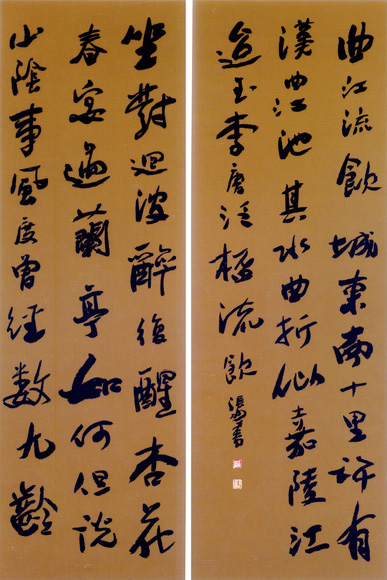 曲江流飲城東南十里許有
漢曲江池其水曲折似嘉陵江
迨至李唐泛流飲書
坐對迴波醉復醒杏花
春宴過蘭亭如何但說
山陰事風度曾經數九齡